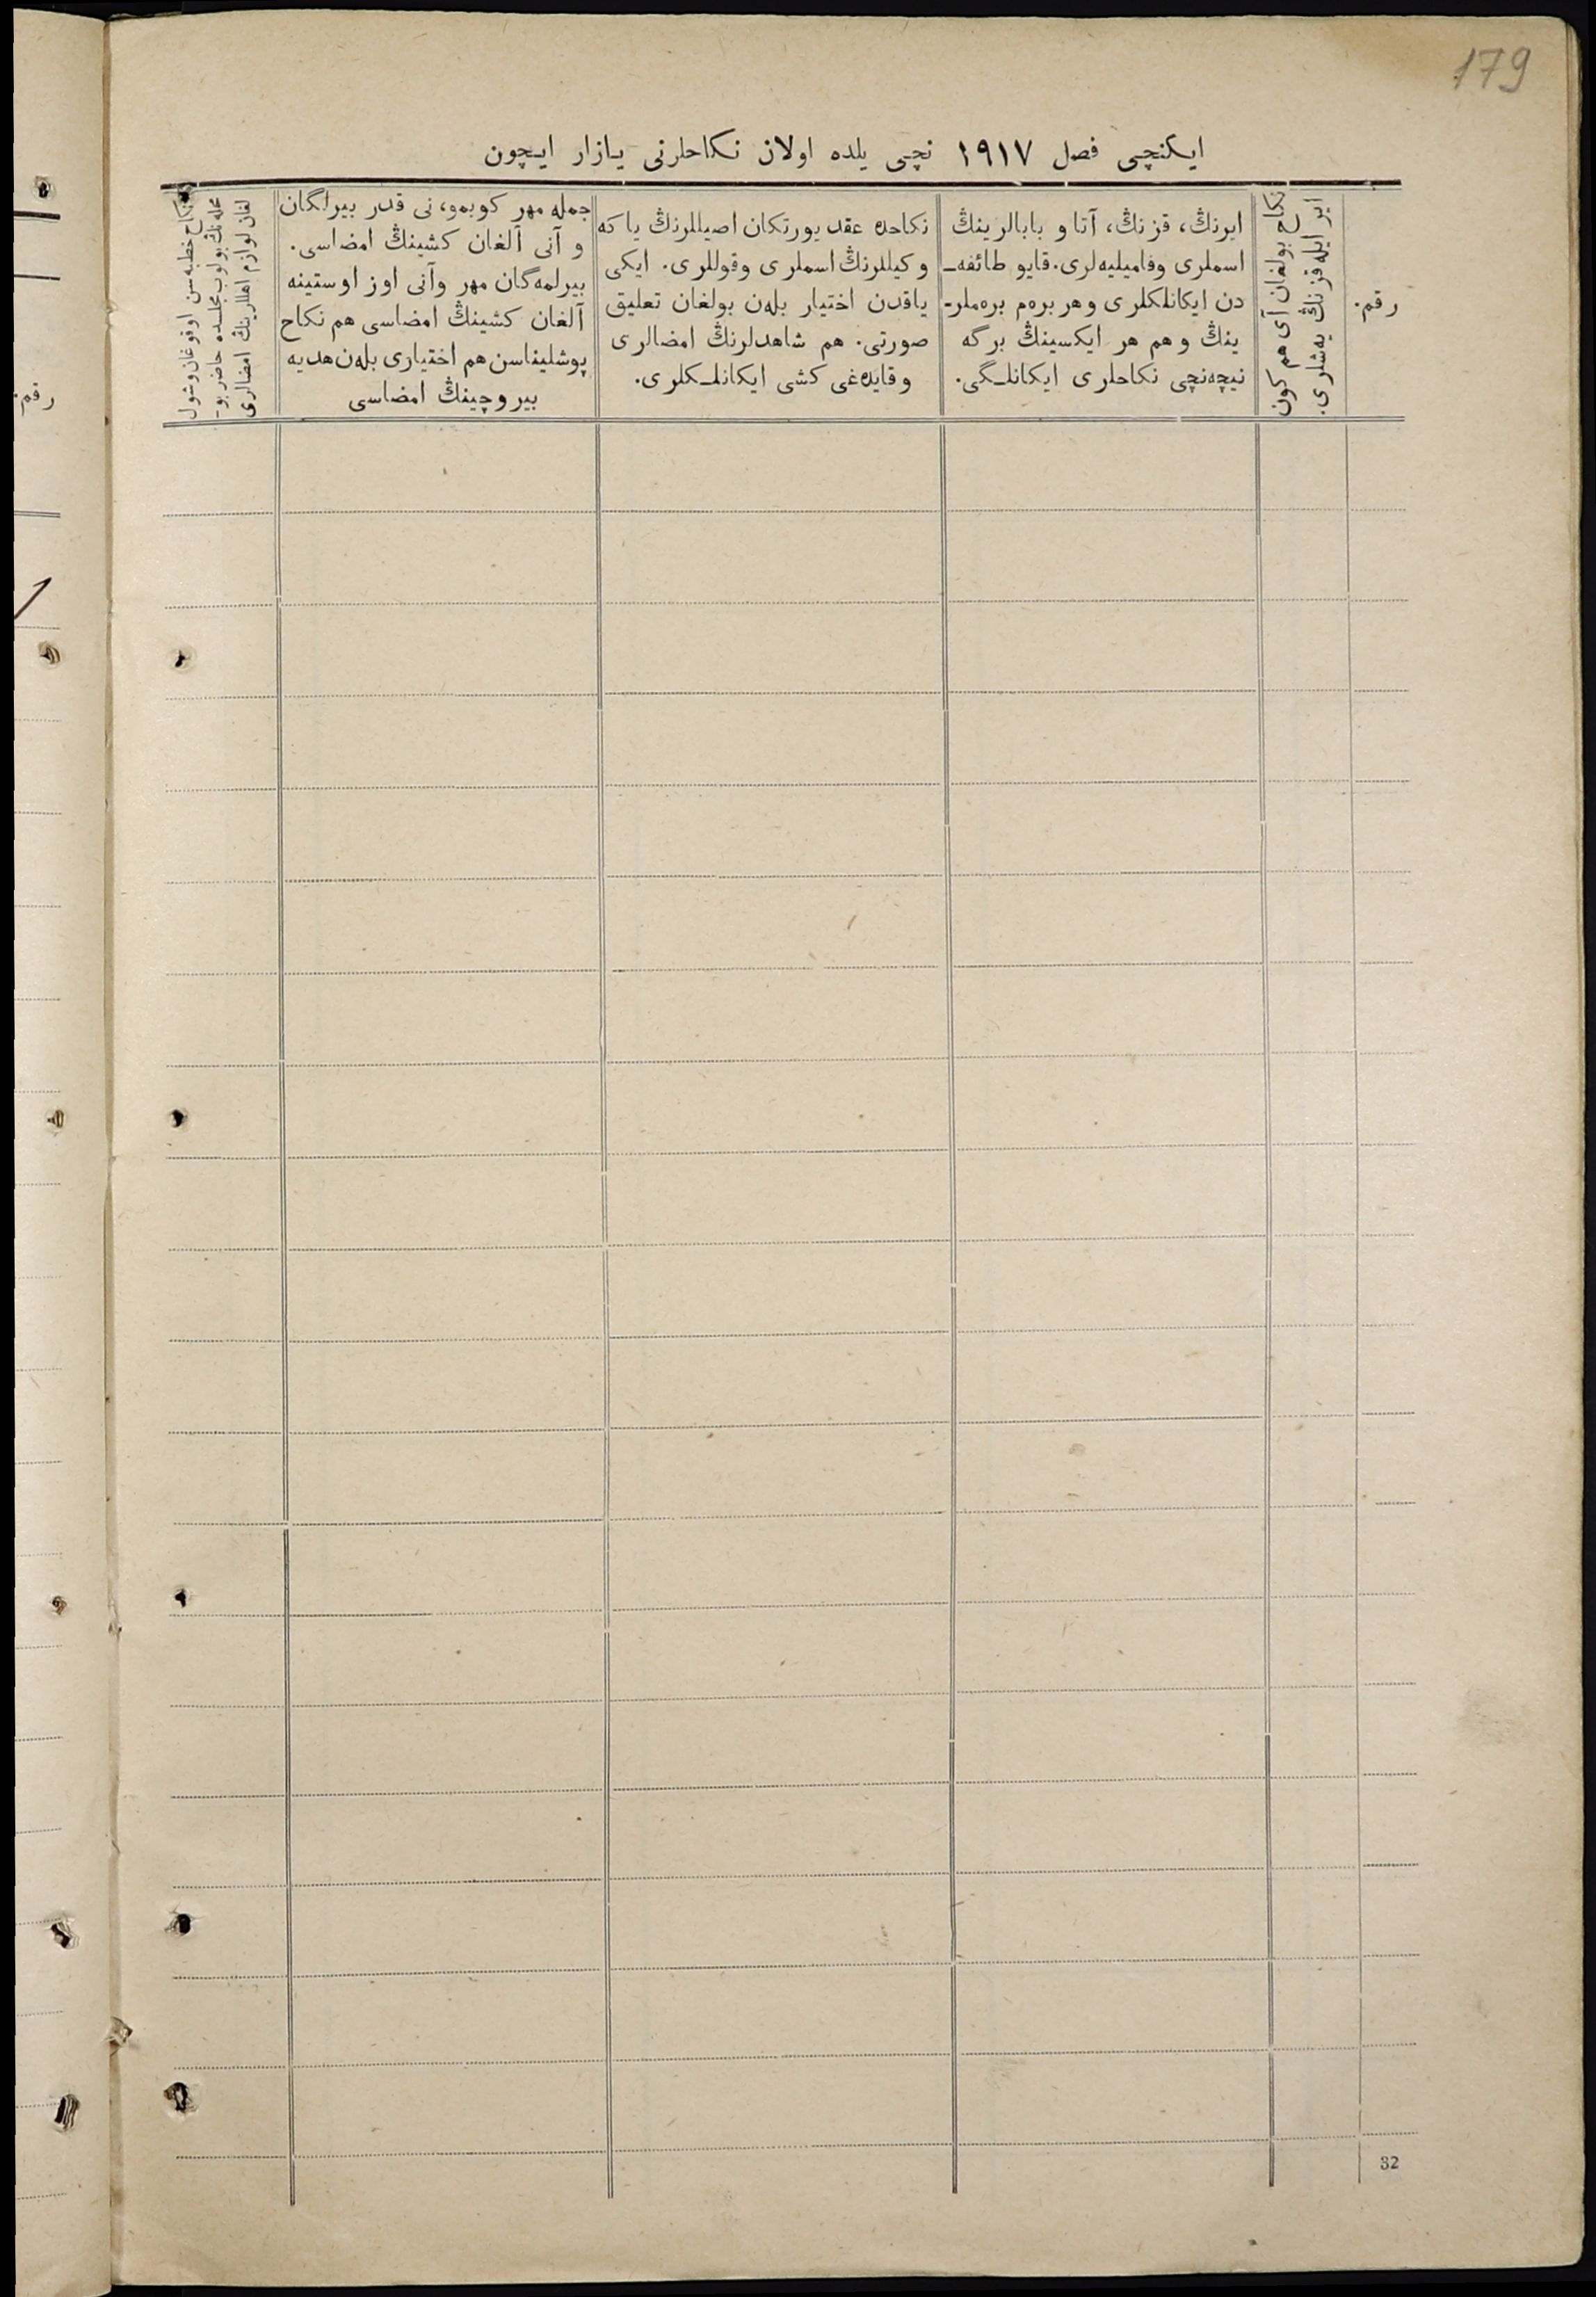 179
ایكنچی فصل ١٩١٧ نچی یلده اولان نكاحلرنی یازار ایچون
رقم.
نكاح بولغان آی هم كون
ایر ایله قزنڭ یه‌شلری.
ایرنڭ، قزنڭ، آتا و بابالرینڭ
اسملری وفامیلیه‌لری. قایو طائفه‌ـ
دن ایكانلكلری و هر بره‌م بره‌ملرـ
ینڭ و هم هر ایكسینڭ برگه
نیچه‌نچی نكاحلری ایكانلـگی.
نكاحده عقد یورتكان اصیللرنڭ یا كه
وكیللرنڭ اسملری وقوللری. ایكی
یاقدن اختیار بله‌ن بولغان تعلیق
صورتی. هم شاهدلرنڭ امضالری
و قایده‌غی كشی ایكانلـكلری.
جمله مهر كوبمو، نی قدر بیرلگان
و آنی آلغان كشینڭ امضاسی.
بیرلمه‌گان مهر وآنی اوز اوستینه
آلغان كشینڭ امضاسی هم نكاح
پوشلیناسن هم اختیاری بله‌ن هدیه
بیروچینڭ امضاسی
نكاح خطبه‌سن اوقوغان وشول
محله‌نڭ بولوب مجلسده حاضر بوـ
لغان لوازم اهللرینڭ امضالری
32
رقم.